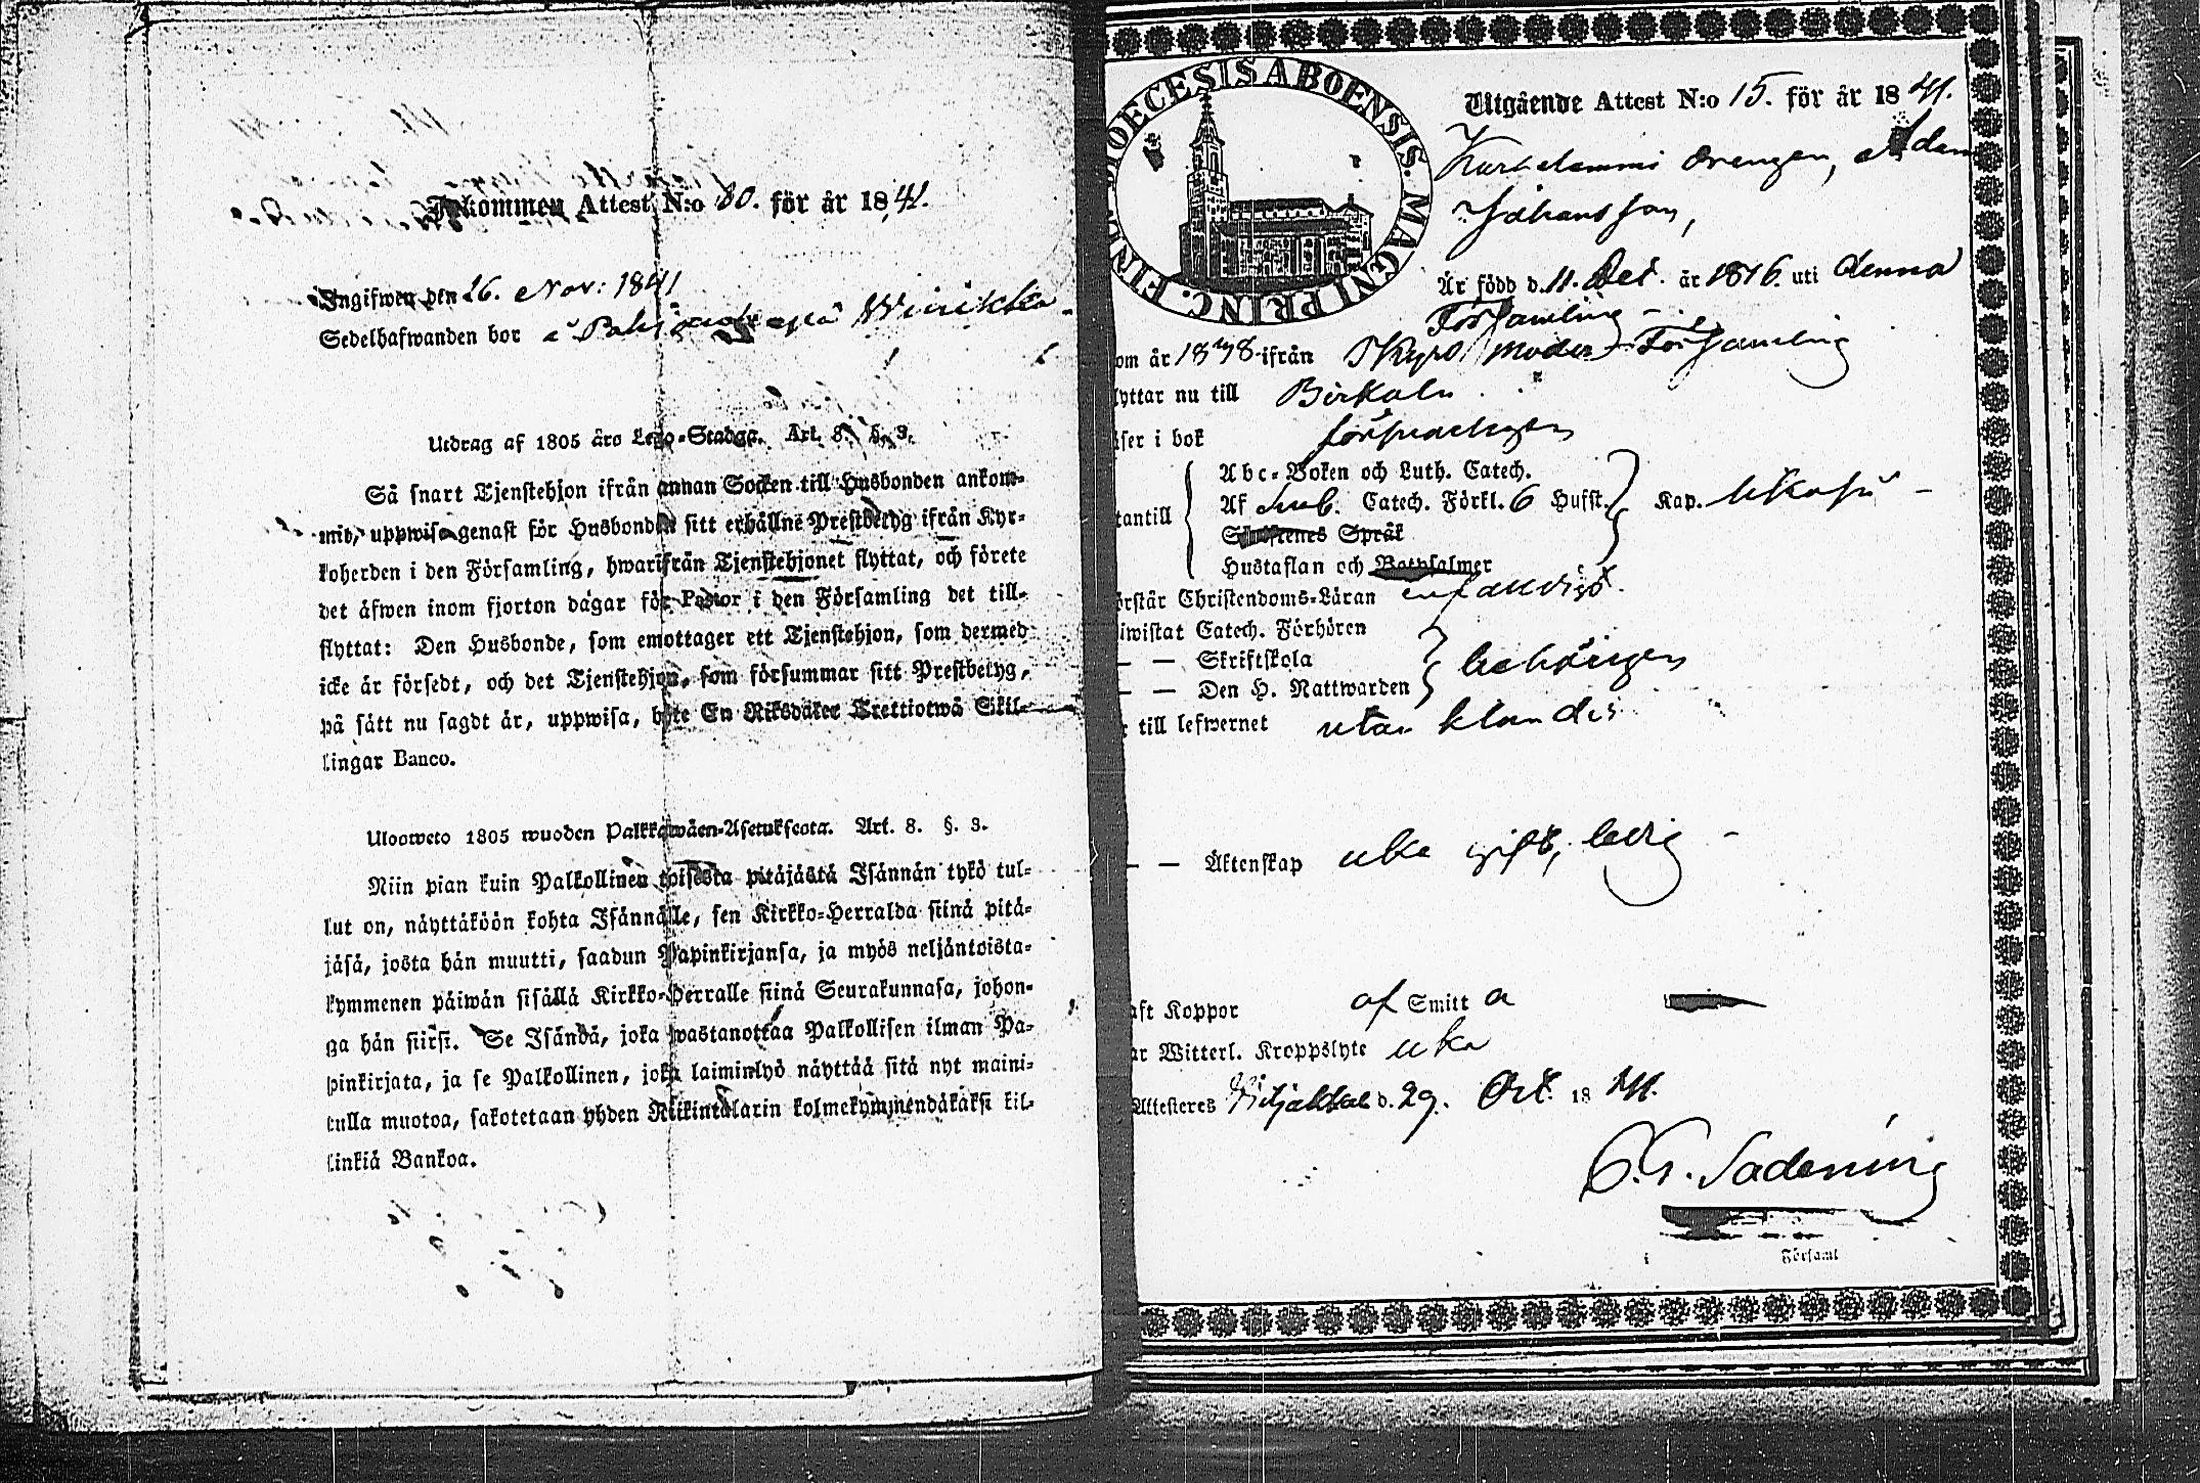 Inkommen Attest N:o 80. för år 1841.
Ingifwen den 26. Nov: 1841
Sedelhafwanden bor å
Utdrag af 1805 års Lego-Stadga. Art. 8. §. 3.
Så snart Tjenstehjon ifrån annan Socken till Husbonden ankom-
mit, uppwise genast för Husbonden sitt erhållne Prestbetyg ifrån Kyr-
koherden i den Församling, hwarifrån Tjenstehjonet flyttat, och förete
det äfwen inom fjorton dagar för Pastor i den Församling det till-
flyttat: Den Husbonde, som emottager ett Tjenstehjon, som dermed
icke är försedt, och det Tjenstehjon, som försummar sitt Prestbetyg,
på sätt nu sagdt är, uppwisa, böte En Riksdaler Trettiotwå Skil-
lingar Banco.
Ulosweto 1805 wuoden Palkkawäen-Asetuksesta. Art. 8. §. 3.
Niin pian kuin Palkollinen toisesta pitäjästä Isännän tykö tul-
lut on, näyttäköön kohta Isännälle, sen Kirkko-Herralda siinä pitä-
jäsä, josta hän muutti, saadun Papinkirjansa, ja myös neljäntoista-
kymmenen päiwän sisällä Kirkko-Herralle siinä Seurakunnasa, johon-
ga hän siirsi. Se Isändä, joka wastanottaa Palkollisen ilman Pa-
pinkirjata, ja se Palkollinen, joka laiminlyö näyttää sitä nyt maini-
tulla muotoa, sakotetaan yhden Riikintalarin kolmekymmendäkaksi kil-
linkiä Bankoa.
DIOECESIS ABOENSIS. MAGNI PRINC. FINL.
Utgående Attest N:o 15. för år 1841.
Drengen, Adam
Johansson,
Är född d. 11. Dec. år 1816. uti denna
Församling -
om år 1838 ifrån Ikyro Moder Församling
lyttar nu till Birkala
äser i bok försvarligen
Abc-Boken och Luth. Catech.
tantill Af Sweb. Catech. Förkl. 6 Hufst. Kap. likaså -
Skriftenes Språk
Hustaflan och Botpsalmer
örstår Christendoms-Läran enfaldigt.
iwistat Catech. Förhören
— — Skriftskola behörigen
— — Den H. Nattwarden
r till lefwernet utan klander
— — Äktenskap icke gift, ledig -
aft Koppor af Smitt a
ar Witterl. Kroppslyte icke
Attesteres Wiljakkala d. 29. Oct. 1841.
i Församl